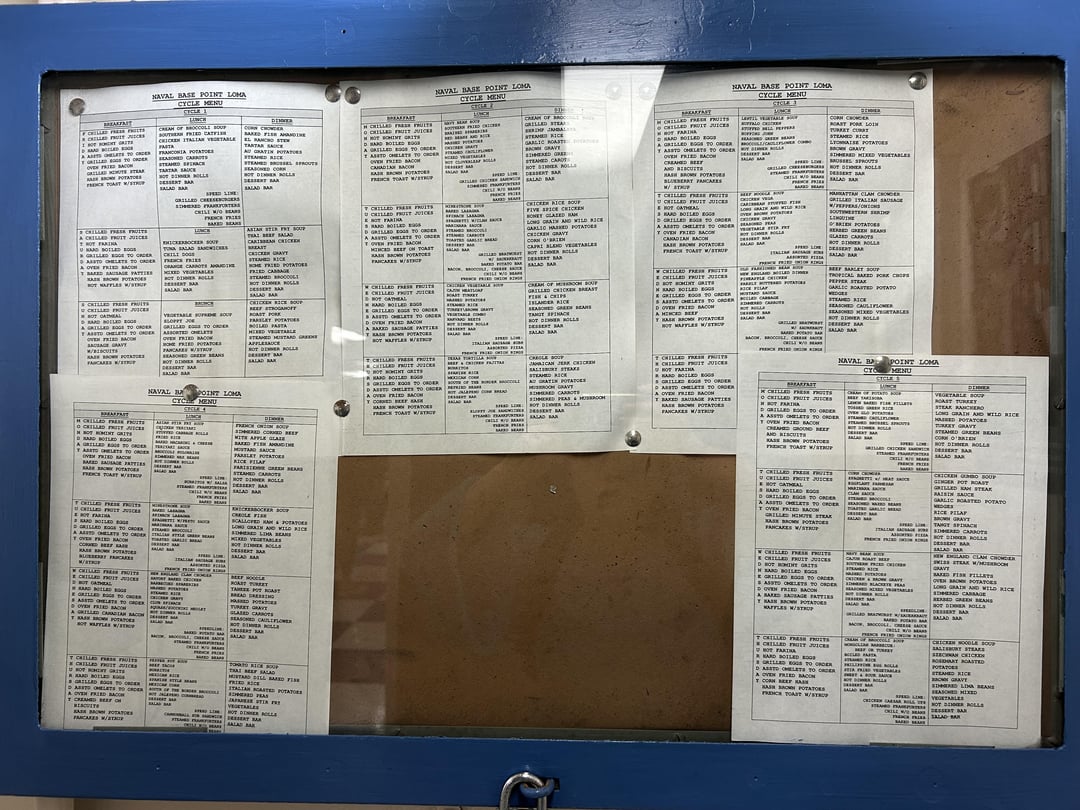 NAVAL BASE POINT LOMA
CYCLE MENU
CYCLE 1
BREAKFAST
LUNCH
DINNER
F CHILLED FRESH FRUITS
R CHILLED FRUIT JUICES
I HOT HOMINY GRITS
D HARD BOILED EGGS
A ASSTD OMELETS TO ORDER
Y GRILLED EGGS TO ORDER
OVEN FRIED BACON
GRILLED MINUTE STEAK
HASH BROWN POTATOES
FRENCH TOAST W/SYRUP
CREAM OF BROCCOLI SOUP
SOUTHERN FRIED CATFISH
CHICKEN ITALIAN VEGETABLE
PASTA
FRANCONIA POTATOES
SEASONED CARROTS
STEAMED SPINACH
TARTAR SAUCE
HOT DINNER ROLLS
DESSERT BAR
SALAD BAR
SPEED LINE:
GRILLED CHEESEBURGERS
SIMMERED FRANKFURTERS
CHILI W/O BEANS
FRENCH FRIES
BAKED BEANS
CORN CHOWDER
BAKED FISH AMANDINE
EL RANCHO STEW
TARTAR SAUCE
AU GRATIN POTATOES
STEAMED RICE
STEAMED BRUSSEL SPROUTS
SEASONED CORN
HOT DINNER ROLLS
DESSERT BAR
SALAD BAR
S CHILLED FRESH FRUITS
A CHILLED FRUIT JUICES
T HOT FARINA
U HARD BOILED EGGS
R GRILLED EGGS TO ORDER
D ASSTD OMELETS TO ORDER
A OVEN FRIED BACON
Y BAKED SAUSAGE PATTIES
HASH BROWN POTATOES
HOT WAFFLES W/SYRUP
LUNCH
KNICKERBOCKER SOUP
TUNA SALAD SANDWICHES
CHILI DOGS
FRENCH FRIES
ORANGE CARROTS AMANDINE
MIXED VEGETABLES
HOT DINNER ROLLS
DESSERT BAR
SALAD BAR
ASIAN STIR FRY SOUP
THAI BEEF SALAD
CARIBBEAN CHICKEN
BREAST
STEAMED RICE
HOME FRIED POTATOES
FRIED CABBAGE
STEAMED BROCCOLI
HOT DINNER ROLLS
DESSERT BAR
SALAD BAR
S CHILLED FRESH FRUITS
U CHILLED FRUIT JUICES
N HOT OATMEAL
D HARD BOILED EGGS
A GRILLED EGGS TO ORDER
Y ASSTD OMELETS TO ORDER
OVEN FRIED BACON
SAUSAGE GRAVY
W/BISCUITS
HASH BROWN POTATOES
PANCAKES W/SYRUP
BRUNCH
VEGETABLE SUPREME SOUP
SLOPPY JOE
GRILLED EGGS TO ORDER
ASSORTED OMELETS
OVEN FRIED BACON
HOME FRIED POTATOES
PANCAKES W/SYRUP
SEASONED GREEN BEANS
HOT DINNER ROLLS
DESSERT BAR
SALAD BAR
CHICKEN RICE SOUP
BEEF STROGANOFF
ROAST PORK
PARSLEY POTATOES
BOILED PASTA
MIXED VEGETABLE
STEAMED MUSTARD GREENS
APPLESAUCE
HOT DINNER ROLLS
DESSERT BAR
SALAD BAR
NAVAL BASE POINT LOMA
CYCLE MENU
CYCLE 2
BREAKFAST
LUNCH
M CHILLED FRESH FRUITS
O CHILLED FRUIT JUICES
N HOT HOMINY GRITS
D HARD BOILED EGGS
A GRILLED EGGS TO ORDER
Y ASSTD OMELETS TO ORDER
OVEN FRIED BACON
CANADIAN BACON
HASH BROWN POTATOES
FRENCH TOAST W/SYRUP
NAVY BEAN SOUP
SOUTHERN FRIED CHICKEN
BRAISED SPARERIBS
RED BEANS AND RICE
MASHED POTATOES
CHICKEN GRAVY
STEAMED CAULIFLOWER
MIXED VEGETABLES
HOT CLOVERLEAF ROLLS
DESSERT BAR
SALAD BAR
SPEED LINE:
GRILLED CHICKEN SANDWICH
SIMMERED FRANKFURTERS
CHILI W/O BEANS
FRENCH FRIES
BAKED BEANS
CREAM OF BROCCOLI
GRILLED STEAKS
SHRIMP JAMBALAYA
STEAMED RICE
GARLIC ROASTED
BROWN GRAVY
SIMMERED GREENS
STEAMED CAROTS
HOT DINNER ROLLS
DESSERT BAR
SALAD BAR
T CHILLED FRESH FRUITS
U CHILLED FRUIT JUICES
E HOT FARINA
S HARD BOILED EGGS
D GRILLED EGGS TO ORDER
A ASSTD OMELETS TO ORDER
Y OVEN FRIED BACON
MINCED BEEF ON TOAST
HASH BROWN POTATOES
PANCAKES W/SYRUP
MINESTRONE SOUP
BAKED LASAGNA
SPINACH LASAGNA
SPAGHETTI W/CLAM SAUCE
MARINARA SAUCE
STEAMED BROCCOLI
SEASONED CORN
TOASTED GARLIC BREAD
DESSERT BAR
SALAD BAR
GRILLED BRATWURST
W/ SAUERKRAUT
BAKED POTATO BAR
BACON, BROCCOLI, CHEESE SAUCE
CHILI W/O BEANS
FRENCH FRIED ONION RINGS
CHICKEN RICE SOUP
FIVE SPICE CHICKEN
HONEY GLAZED HAM
LONG GRAIN AND WILD RICE
GARLIC MASHED POTATOES
CHICKEN GRAVY
CORN O'BRIEN
CAPRI BLEND VEGETABLES
HOT DINNER ROLLS
DESSERT BAR
SALAD BAR
W CHILLED FRESH FRUITS
E CHILLED FRUIT JUICES
D HOT OATMEAL
N HARD BOILED EGGS
E GRILLED EGGS TO ORDER
S ASSTD OMELETS TO ORDER
D OVEN FRIED BACON
A BAKED SAUSAGE PATTIES
Y HASH BROWN POTATOES
HOT WAFFLES W/SYRUP
CHICKEN VEGETABLE SOUP
CAJUN MEATLOAF
ROAST TURKEY
MASHED POTATOES
STEAMED RICE
TURKEY/BROWN GRAVY
VEGETABLE COMBO
HARVARD BEETS
HOT DINNER ROLLS
DESSERT BAR
SALAD BAR
SPEED LINE:
ITALIAN SAUSAGE SUBS
ASSORTED PIZZA
FRENCH FRIED ONION RINGS
CREAM OF MUSHROOM SOUP
GRILLED CHICKEN BREAST
FISH & CHIPS
ISLANDER RICE
SEASONED GREEN BEANS
TANGY SPINACH
HOT DINNER ROLLS
DESSERT BAR
SALAD BAR
T CHILLED FRESH FRUITS
H CHILLED FRUIT JUICES
U HOT HOMINY GRITS
R HARD BOILED EGGS
S GRILLED EGGS TO ORDER
D ASSTD OMELETS TO ORDER
A OVEN FRIED BACON
Y CORNED BEEF HASH
HASH BROWN POTATOES
FRENCH TOAST W/SYRUP
TEXAS TORTILLA SOUP
BEEF & CHICKEN FAJITAS
BURRITOS
SPANISH RICE
MEXICAN CORN
SOUTH OF THE BORDER BROCCOLI
REFRIED BEANS
HOT JALAPENO CORN BREAD
DESSERT BAR
SALAD BAR
SPEED LINE:
SLOPPY JOE SANDWICHES
STEAMED FRANKFURTERS
CHILI W/O BEANS
FRENCH FRIES
BAKED BEANS
CREOLE SOUP
JAMAICAN JERK CHICKEN
SALISBURY STEAKS
STEAMED RICE
AU GRATIN POTATOES
MUSHROOM GRAVY
SIMMERED CARROTS
SIMMERED PEAS & MUSHROOM
HOT DINNER ROLLS
DESSERT BAR
SALAD BAR
NAVAL BASE POINT LOMA
CYCLE MENU
CYCLE 3
BREAKFAST
LUNCH
DINNER
M CHILLED FRESH FRUITS
O CHILLED FRUIT JUICES
N HOT FARINA
D HARD BOILED EGGS
A GRILLED EGGS TO ORDER
Y ASSTD OMELETS TO ORDER
OVEN FRIED BACON
CREAMED BEEF
AND BISCUITS
HASH BROWN POTATOES
BLUEBERRY PANCAKES
W/ SYRUP
LENTIL VEGETABLE SOUP
BUFFALO CHICKEN
STUFFED BELL PEPPERS
HOPPING JOHN
SEASONED GREEN BEANS
BROCCOLI/CAULIFLOWER COMBO
HOT DINNER ROLLS
DESSERT BAR
SALAD BAR
SPEED LINE:
GRILLED CHEESEBURGERS
STEAMED FRANKFURTERS
CHILI W/O BEANS
FRENCH FRIES
BAKED BEANS
CORN CHOWDER
ROAST PORK LOIN
TURKEY CURRY
STEAMED RICE
LYONNAISE POTATOES
BROWN GRAVY
SIMMERED MIXED VEGETABLES
BRUSSEL SPROUTS
HOT DINNER ROLLS
DESSERT BAR
SALAD BAR
T CHILLED FRESH FRUITS
U CHILLED FRUIT JUICES
E HOT OATMEAL
S HARD BOILED EGGS
D GRILLED EGGS TO ORDER
A ASSTD OMELETS TO ORDER
Y OVEN FRIED BACON
CANADIAN BACON
HASH BROWN POTATOES
FRENCH TOAST W/SYRUP
BEEF NOODLE SOUP
CHICKEN VEGA
CARIBBEAN STUFFED FISH
LONG GRAIN AND WILD RICE
OVEN BROWN POTATOES
CHICKEN GRAVY
SEASONED PEAS
VEGETABLE STIR FRY
HOT DINNER ROLLS
DESSERT BAR
SALAD BAR
SPEED LINE
ITALIAN SAUSAGE SUBS
ASSORTED PIZZA
FRENCH FRIED ONION RINGS
MANHATTAN CLAM CHOWDER
GRILLED ITALIAN SAUSAGE
W/PEPPERS/ONIONS
SOUTHWESTERN SHRIMP
LINGUINE
MASHED POTATOES
HERBED GREEN BEANS
GLAZED CARROTS
HOT DINNER ROLLS
DESSERT BAR
SALAD BAR
W CHILLED FRESH FRUITS
E CHILLED FRUIT JUICES
D HOT HOMINY GRITS
N HARD BOILED EGGS
E GRILLED EGGS TO ORDER
S ASSTD OMELETS TO ORDER
D OVEN FRIED BACON
A MINCED BEEF
Y HASH BROWN POTATOES
HOT WAFFLES W/SYRUP
OLD FASHIONED BEAN SOUP
NEW ENGLAND BOILED DINNER
PINEAPPLE CHICKEN
PARSLY BUTTERED POTATOES
RICE PILAF
MUSTARD SAUCE
BOILED CABBAGE
SIMMERED CARROTS
HOT DINNER ROLLS
DESSERT BAR
SALAD BAR
GRILLED BRATWURST
W/ SAUERKRAUT
BAKED POTATO BAR
BACON, BROCCOLI, CHEESE SAUCE
CHILI W/O BEANS
FRENCH FRIED ONION RINGS
BEEF BARLEY SOUP
TROPICAL BAKED PORK CHOPS
PEPPER STEAK
GARLIC ROASTED POTATO
WEDGES
STEAMED RICE
SEASONED CAULIFLOWER
SEASONED MIXED VEGETABLES
HOT DINNER ROLLS
DESSERT BAR
SALAD BAR
T CHILLED FRESH FRUITS
H CHILLED FRUIT JUICES
U HOT FARINA
R HARD BOILED EGGS
S GRILLED EGGS TO ORDER
D ASSTD OMELETS TO ORDER
A OVEN FRIED BACON
Y BAKED SAUSAGE PATTIES
HASH BROWN POTATOES
PANCAKES W/SYRUP
NAVAL BASE POINT LOMA
CYCLE MENU
CYCLE 4
BREAKFAST
LUNCH
DINNER
M CHILLED FRESH FRUITS
O CHILLED FRUIT JUICES
N HOT HOMINY GRITS
D HARD BOILED EGGS
A GRILLED EGGS TO ORDER
Y ASSTD OMELETS TO ORDER
OVEN FRIED BACON
BAKED SAUSAGE PATTIES
HASH BROWN POTATOES
FRENCH TOAST W/SYRUP
ASIAN STIR FRY SOUP
CHICKEN TERIYAKI
STUFFED CABBAGE ROLLS
FRIED RICE
BAKED MACARONI & CHEESE
TERIYAKI SAUCE
BROCCOLI POLONAISE
SIMMERED WAX BEANS
HOT DINNER ROLLS
DESSERT BAR
SALAD BAR
SPEED LINE:
BURRITOS W/ SALSA
STEAMED FRANKFURTERS
CHILI W/O BEANS
FRENCH FRIES
BAKED BEANS
FRENCH ONION SOUP
SIMMERED CORNED BEEF
WITH APPLE GLAZE
BAKED FISH AMANDINE
MUSTARD SAUCE
PARSLEY POTATOES
RICE PILAF
PARISIENNE GREEN BEANS
STEAMED CARROTS
HOT DINNER ROLLS
DESSERT BAR
SALAD BAR
T CHILLED FRESH FRUITS
U CHILLED FRUIT JUICES
E HOT FARINA
S HARD BOILED EGGS
D GRILLED EGGS TO ORDER
A ASSTD OMELETS TO ORDER
Y OVEN FRIED BACON
CORNED BEEF HASH
HASH BROWN POTATOES
BLUEBERRY PANCAKES
W/SYRUP
MINESTRONE SOUP
BAKED LASAGNA
SPINACH LASAGNA
SPAGHETTI W/PESTO SAUCE
MARINARA SAUCE
STEAMED BROCCOLI
ITALIAN STYLE GREEN BEANS
TOASTED GARLIC BREAD
DESSERT BAR
SALAD BAR
SPEED LINE:
ITALIAN SAUSAGE SUBS
ASSORTED PIZZA
FRENCH FRIED ONION RINGS
KNICKERBOCKER SOUP
CREOLE FISH
SCALLOPED HAM & POTATOES
LONG GRAIN AND WILD RICE
SIMMERED LIMA BEANS
MIXED VEGETABLES
HOT DINNER ROLLS
DESSERT BAR
SALAD BAR
W CHILLED FRESH FRUITS
E CHILLED FRUIT JUICES
D HOT OATMEAL
N HARD BOILED EGGS
E GRILLED EGGS TO ORDER
S ASSTD OMELETS TO ORDER
D OVEN FRIED BACON
A GRILLED CANADIAN BACON
Y HASH BROWN POTATOES
HOT WAFFLES W/SYRUP
NEW ENGLAND CLAM CHOWDER
SAVORY BAKED CHICKEN
BARBECUED SPARERIBS
MASHED POTATOES
STEAMED RICE
CHICKEN GRAVY
CLUB SPINACH
SQUASH/ZUCCHINI MEDLEY
HOT DINNER ROLLS
DESSERT BAR
SALAD BAR
SPEEDLINE:
BAKED POTATO BAR
BACON, BROCCOLI, CHEESE SAUCE
STEAMED FRANKFURTERS
CHILI W/O BEANS
FRENCH FRIES
BAKED BEANS
BEEF NOODLE
ROAST TURKEY
YANKEE POT ROAST
BREAD DRESSING
MASHED POTATOES
TURKEY GRAVY
GLAZED CARROTS
SEASONED CAULIFLOWER
HOT DINNER ROLLS
DESSERT BAR
SALAD BAR
T CHILLED FRESH FRUITS
H CHILLED FRUIT JUICES
U HOT HOMINY GRITS
R HARD BOILED EGGS
S GRILLED EGGS TO ORDER
D ASSTD OMELETS TO ORDER
A OVEN FRIED BACON
Y CREAMED BEEF ON
BISCUITS
HASH BROWN POTATOES
PANCAKES W/SYRUP
PEPPER POT SOUP
BEEF TACOS
BURRITOS
MEXICAN RICE
SPANISH STYLE BEANS
MEXICAN CORN
SOUTH OF THE BORDER BROCCOLI
HOT JALAPENO CORNBREAD
DESSERT BAR
SALAD BAR
SPEED LINE:
CANNONBALL SUB SANDWICH
STEAMED FRANKFURTERS
CHILI W/O BEANS
TOMATO RICE SOUP
THAI BEEF SALAD
MUSTARD DILL BAKED FISH
FRIED RICE
ITALIAN ROASTED POTATOES
SIMMERED PEAS
JAPANESE STIR FRY
VEGETABLES
HOT DINNER ROLLS
DESSERT BAR
SALAD BAR
NAVAL BASE POINT LOMA
CYCLE MENU
CYCLE 5
BREAKFAST
LUNCH
DINNER
M CHILLED FRESH FRUITS
O CHILLED FRUIT JUICES
N HOT FARINA
D GRILLED EGGS TO ORDER
A ASSTD OMELETS TO ORDER
Y OVEN FRIED BACON
CREAMED GROUND BEEF
AND BISCUITS
HASH BROWN POTATOES
FRENCH TOAST W/SYRUP
CREAM OF POTATO SOUP
BEEF YAKISOBA
LEMON BAKED FISH FILLETS
TOSSED GREEN RICE
STEAMED CAULIFLOWER
STEAMED BRUSSEL SPROUTS
HOT DINNER ROLLS
DESSERT BAR
SALAD BAR
SPEED LINE:
GRILLED CHICKEN SANDWICH
STEAMED FRANKFURTERS
CHILI W/O BEANS
FRENCH FRIES
BAKED BEANS
VEGETABLE SOUP
ROAST TURKEY
STEAK RANCHERO
LONG GRAIN AND WILD RICE
MASHED POTATOES
TURKEY GRAVY
STEAMED GREEN BEANS
CORN O'BRIEN
HOT DINNER ROLLS
DESSERT BAR
SALAD BAR
T CHILLED FRESH FRUITS
U CHILLED FRUIT JUICES
E HOT OATMEAL
S HARD BOILED EGGS
D GRILLED EGGS TO ORDER
A ASSTD OMELETS TO ORDER
Y OVEN FRIED BACON
GRILLED MINUTE STEAK
HASH BROWN POTATOES
PANCAKES W/SYRUP
CORN CHOWDER
SPAGHETTI w/ MEAT SAUCE
EGGPLANT PARMESAN
MARINARA SAUCE
CLAM SAUCE
STEAMED BROCCOLI
SEASONED WAXED BEANS
TOASTED GARLIC BREAD
DESSERT BAR
SALAD BAR
SPEED LINE:
ITALIAN SAUSAGE SUBS
ASSORTED PIZZA
FRENCH FRIED ONION RINGS
CHICKEN GUMBO SOUP
GINGER POT ROAST
GRILLED HAM STEAK
RAISIN SAUCE
GARLIC ROASTED POTATO
WEDGES
RICE PILAF
BROWN GRAVY
TANGY SPINACH
SIMMERED CARROTS
HOT DINNER ROLLS
DESSERT BAR
SALAD BAR
W CHILLED FRESH FRUITS
E CHILLED FRUIT JUICES
D HOT HOMINY GRITS
N HARD BOILED EGGS
E GRILLED EGGS TO ORDER
S ASSTD OMELETS TO ORDER
D OVEN FRIED BACON
A BAKED SAUSAGE PATTIES
Y HASH BROWN POTATOES
WAFFLES W/SYRUP
NAVY BEAN SOUP
CAJUN ROAST BEEF
SOUTHERN FRIED CHICKEN
STEAMED RICE
MASHED POTATOES
CHICKEN & BROWN GRAVY
SIMMERED BLACKEYE PEAS
SEASONED MIXED VEGETABLES
HOT DINNER ROLLS
DESSERT BAR
SALAD BAR
SPEEDLINE:
GRILLED BRATWURST W/SAUERKRAUT
BAKED POTATO BAR
BACON, BROCCOLI, CHEESE SAUCE
CHILI W/O BEANS
FRENCH FRIED ONION RINGS
NEW ENGLAND CLAM CHOWDER
SWISS STEAK W/MUSHROOM
GRAVY
BAKED FISH FILLETS
OVEN BROWN POTATOES
LONG GRAIN AND WILD RICE
SIMMERED CABBAGE
HERBED GREEN BEANS
HOT DINNER ROLLS
DESSERT BAR
SALAD BAR
T CHILLED FRESH FRUITS
H CHILLED FRUIT JUICES
U HOT FARINA
R HARD BOILED EGGS
S GRILLED EGGS TO ORDER
D ASSTD OMELETS TO ORDER
A OVEN FRIED BACON
Y CORN BEEF HASH
HASH BROWN POTATOES
FRENCH TOAST W/SYRUP
CREAM OF BROCCOLI SOUP
MONGOLIAN BARBECUE:
BEEF OR TURKEY
BOILED PASTA
STEAMED RICE
PHILIPPINE EGG ROLLS
STIR FRIED VEGETABLES
SWEET & SOUR SAUCE
HOT DINNER ROLLS
DESSERT BAR
SALAD BAR
SPEED LINE:
CHICKEN CAESAR ROLL UPS
STEAMED FRANKFURTERS
CHILI W/O BEANS
FRENCH FRIES
BAKED BEANS
CHICKEN NOODLE SOUP
SALISBURY STEAKS
SZECHWAN CHICKEN
ROSEMARY ROASTED
POTATOES
STEAMED RICE
BROWN GRAVY
SIMMERED LIMA BEANS
SEASONED MIXED
VEGETABLES
HOT DINNER ROLLS
DESSERT BAR
SALAD BAR